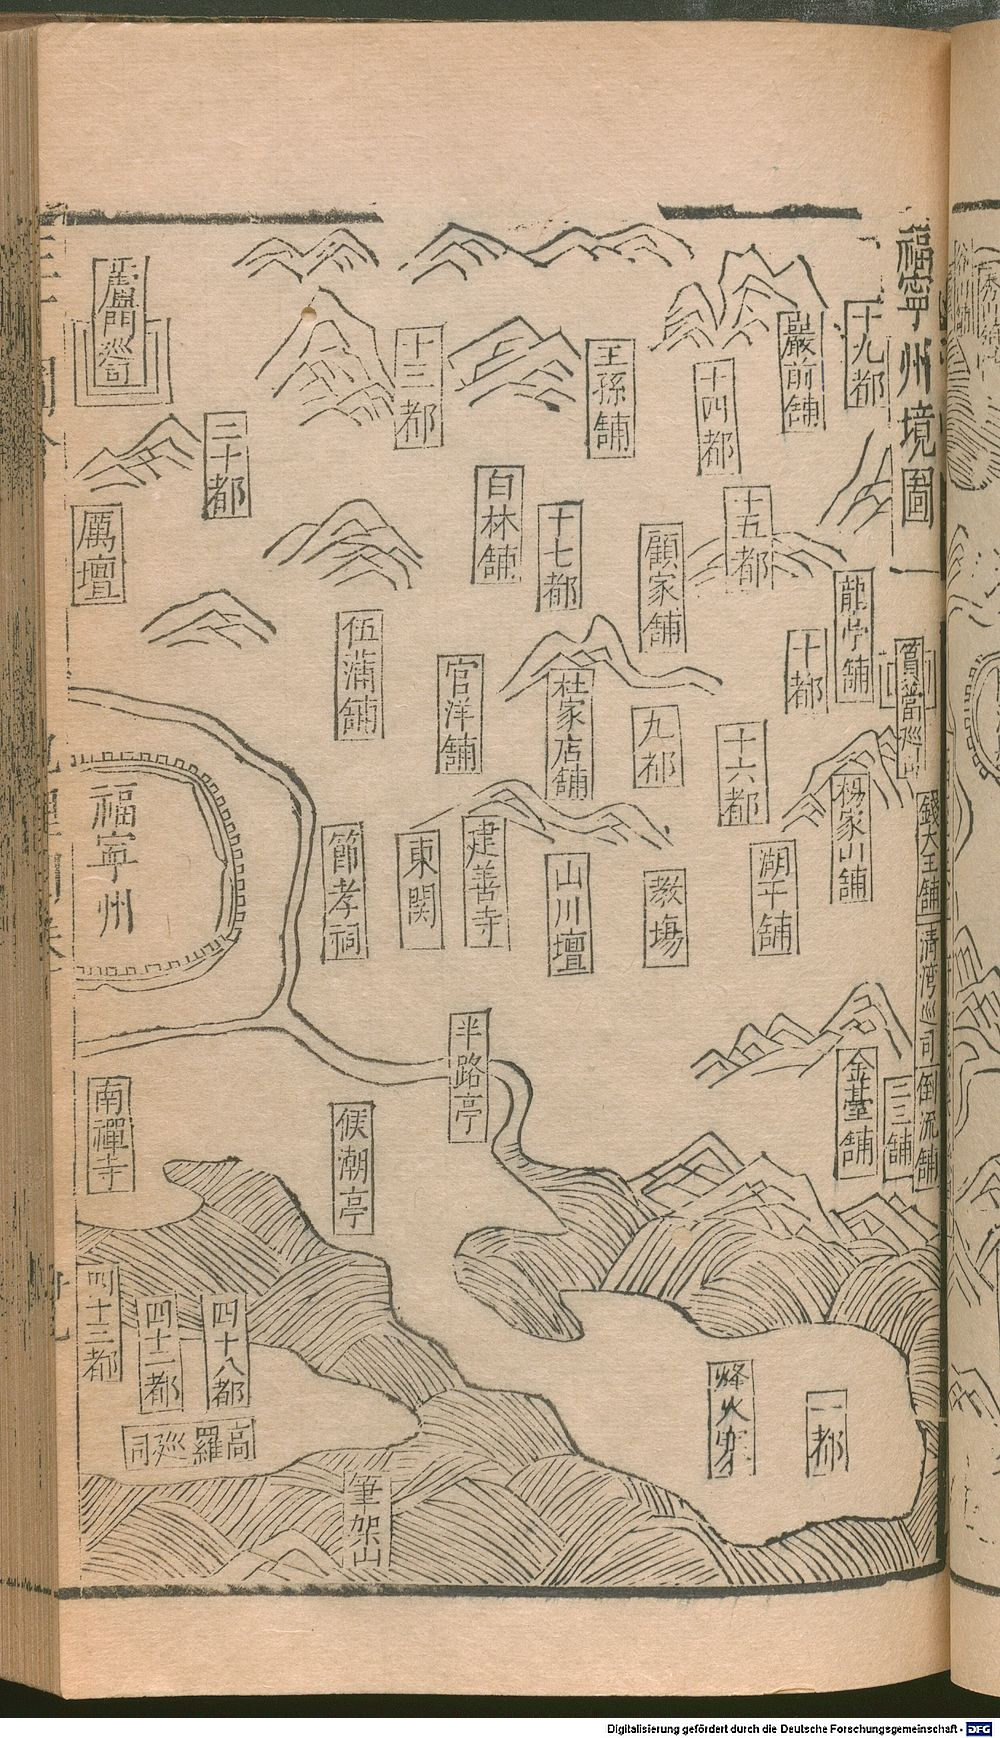 福寧州境圖
十九都
巖前舖
十四都
王孫舖
十三都
蘆門巡司
二十都
厲壇
白林舖
十七都
顧家舖
十五都
龍亭舖
十都
篔簹巡
杜家店舖
九都
十六都
楊家山舖
錢大王舖
清湾巡司
倒流舖
三三舖
金臺舖
湖平舖
教場
山川壇
建善寺
東関
節孝祠
官洋舖
伍蒲舖
福寧州
半路亭
候潮亭
南禪寺
四十八都
四十二都
都
高羅廵司
筆架山
烽火
一都
Digitalisierung gefördert durch die Deutsche Forschungsgemeinschaft - DFG